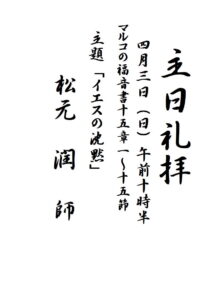 主日礼拝
四月三日（日）午前十時半
マルコの福音書十五章一～十五節
主題「イエスの沈黙」
松元潤師